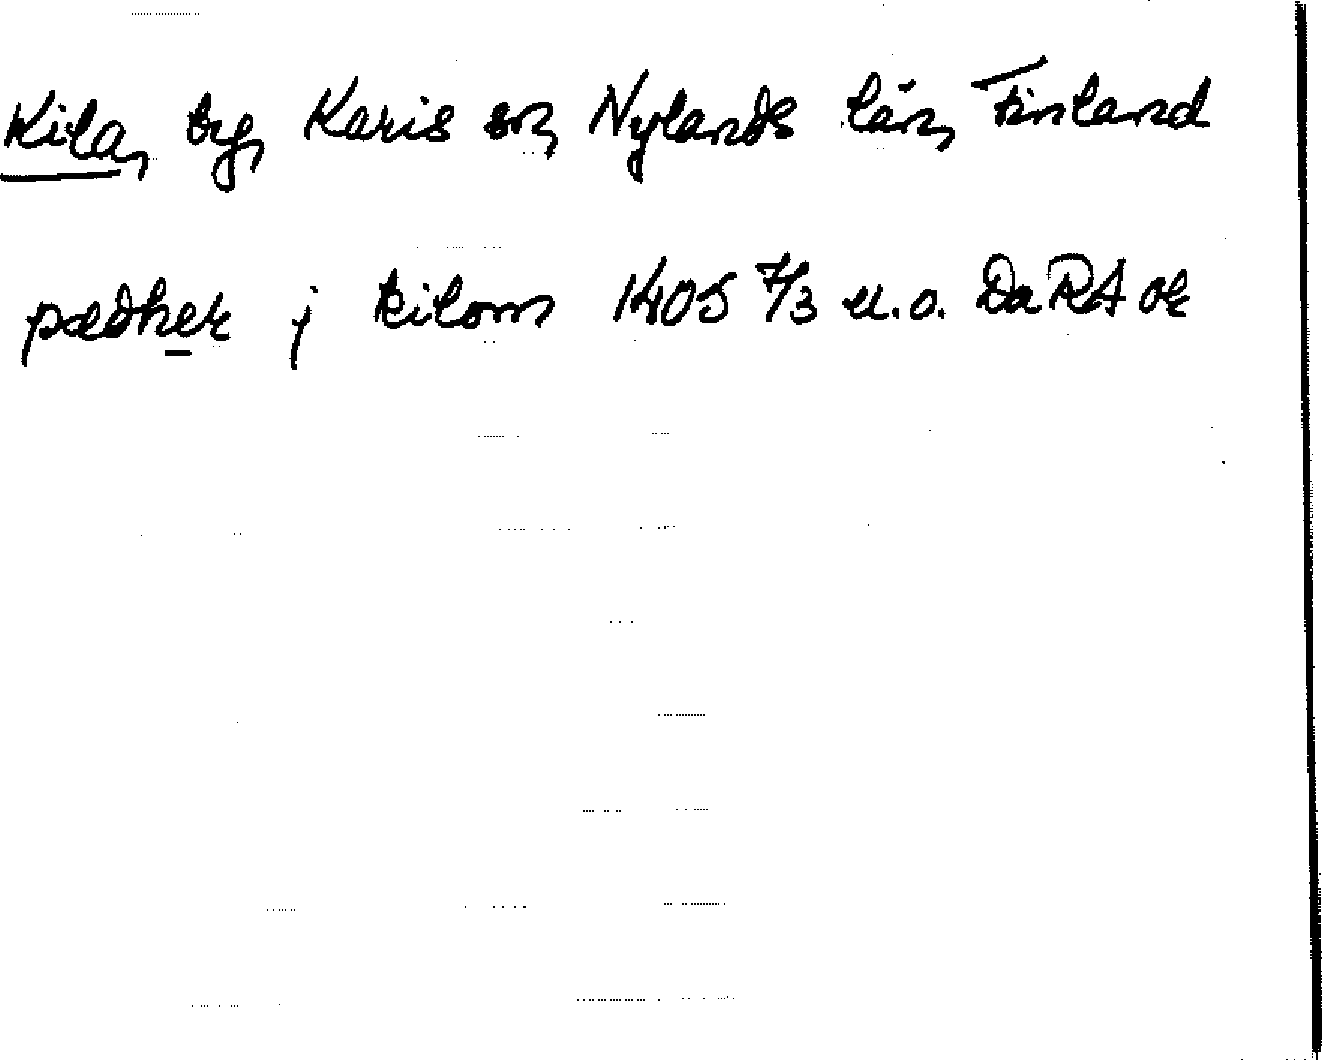 Kila, by, Karis sn, Nylands län, Finland
pædhek j kilom 1405 7/3 u.o. DaRA or